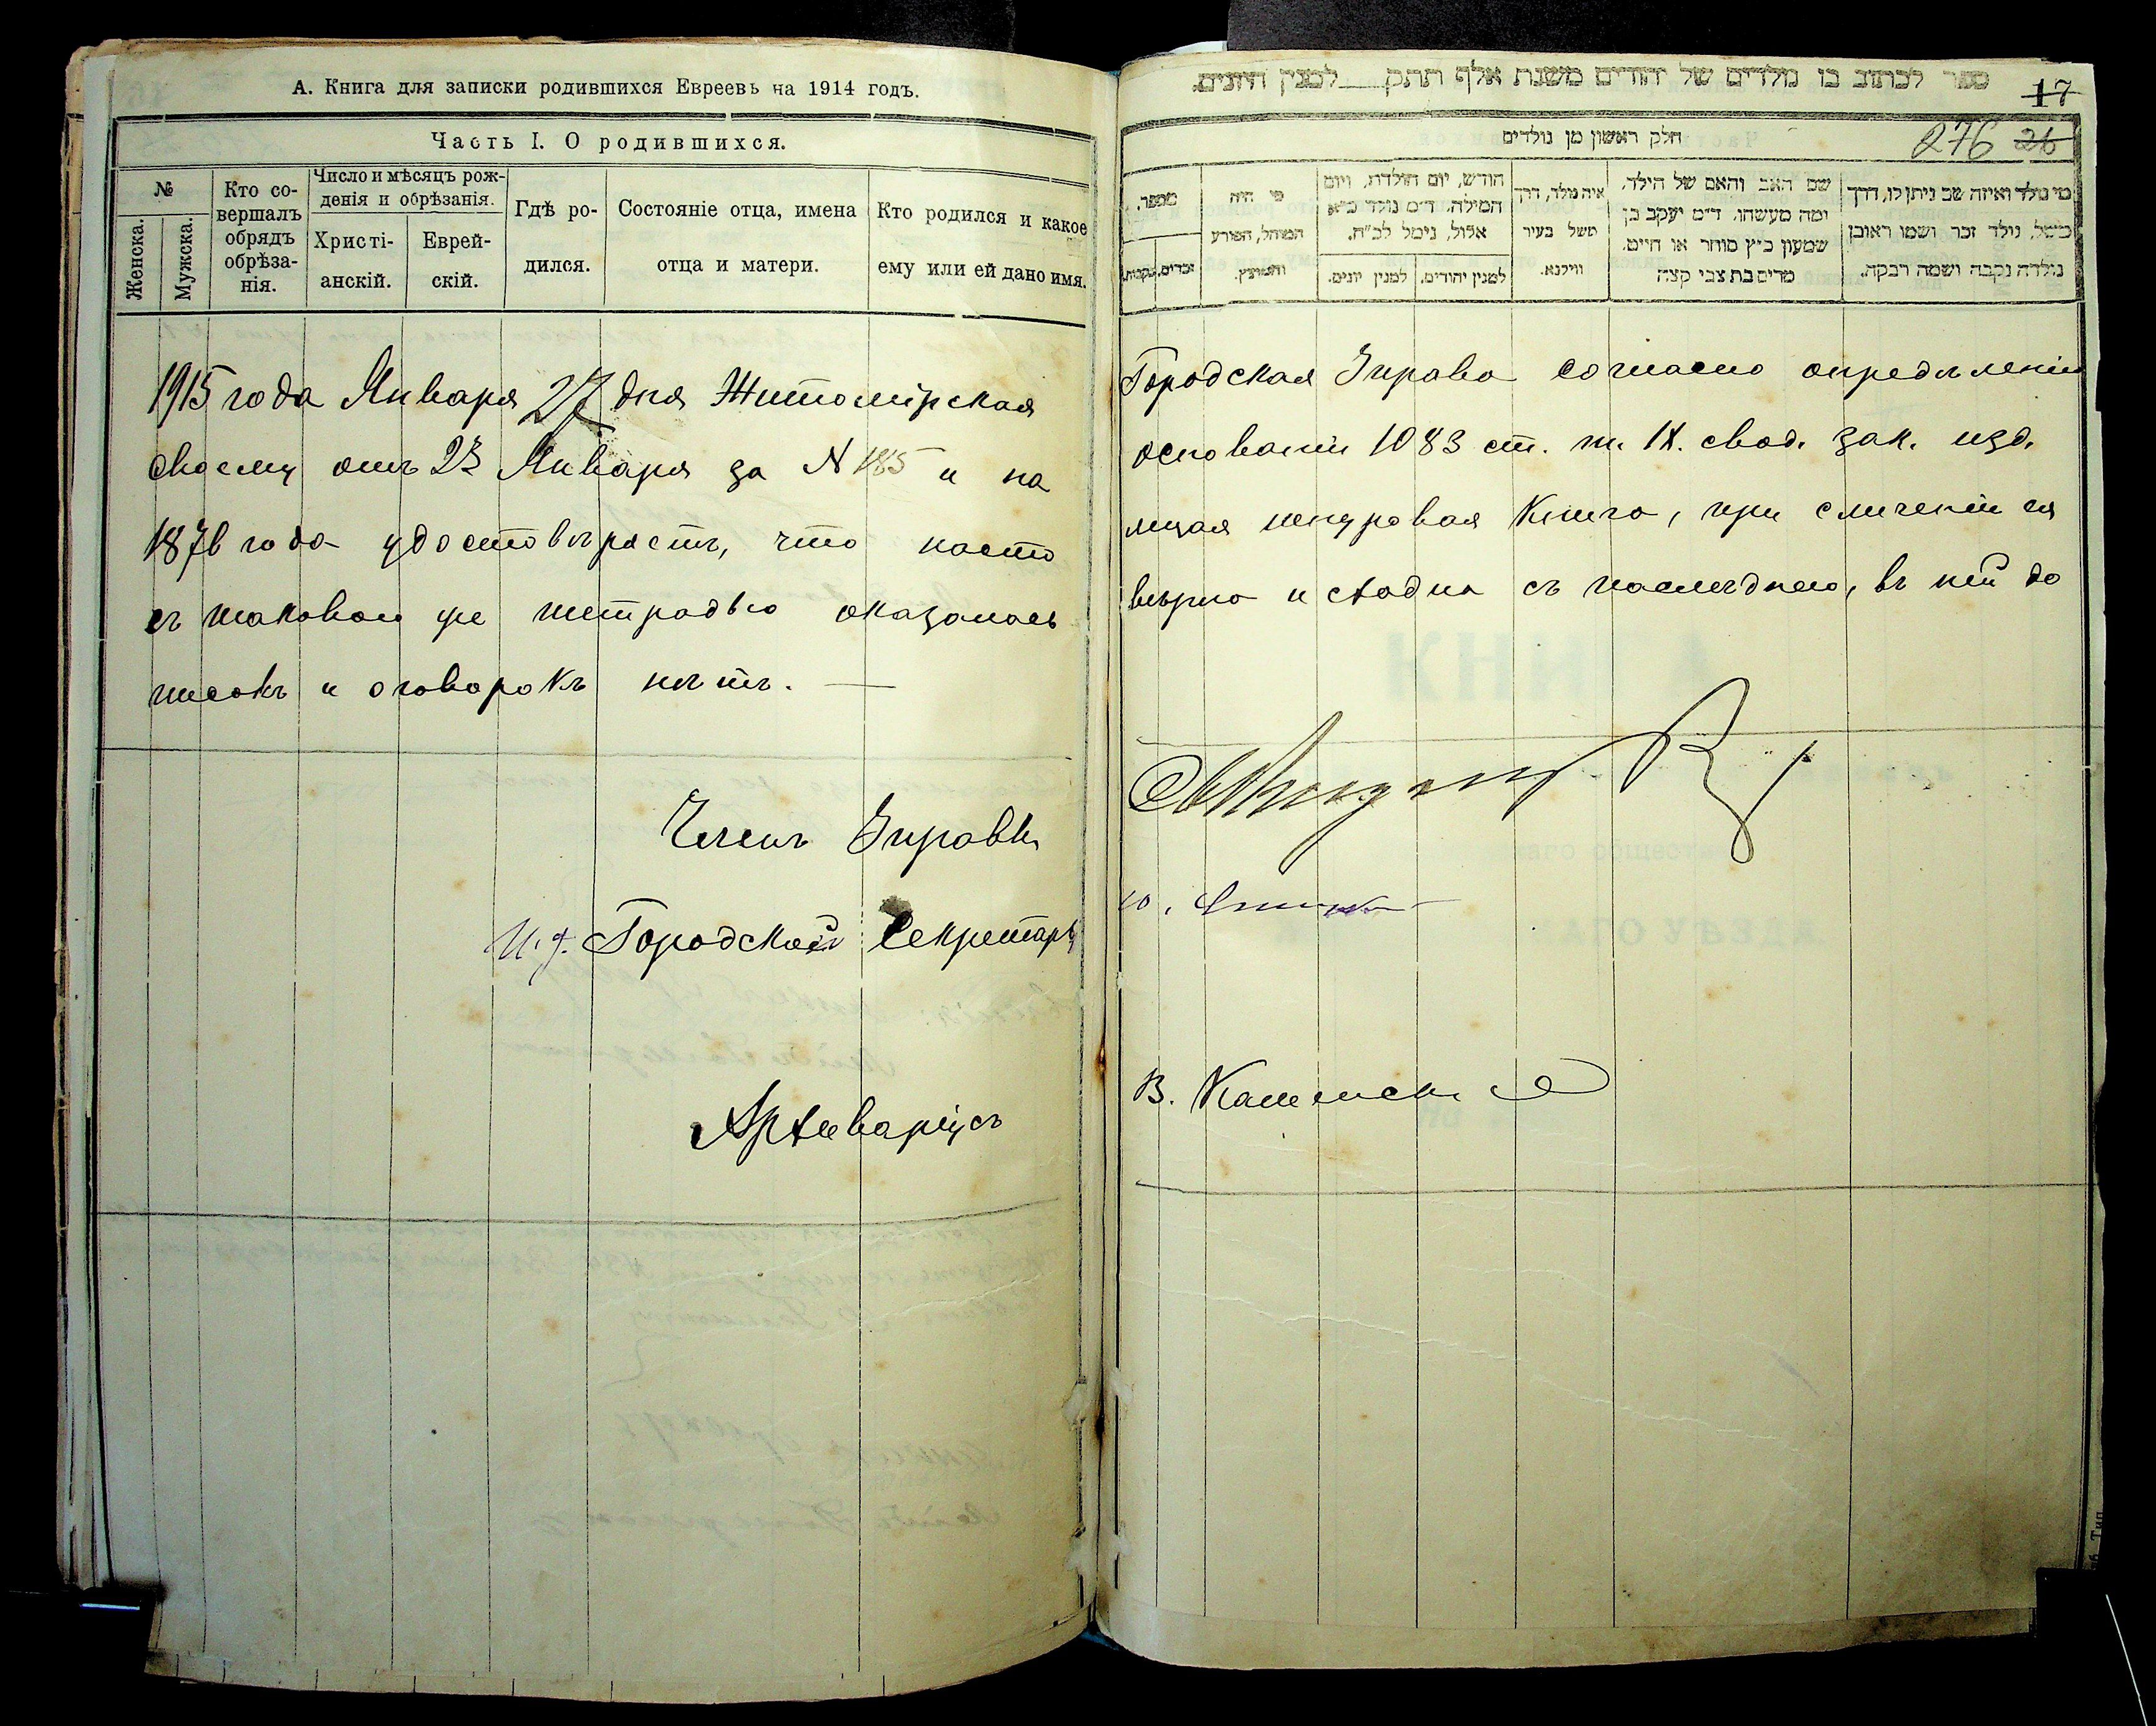 А. Книга для записки родившихся Евреевъ на 1914 годъ.
Часть I. О родившихся.
№
Женска.
Мужска.
Кто со-
вершалъ
обрядъ
обрѣза-
нія.
Число и мѣсяцъ рож-
денія и обрѣзанія.
Христі-
анскій.
Еврей-
скій.
Гдѣ ро-
дился.
Состояніе отца, имена
отца и матери.
Кто родился и какое
ему или ей дано имя.
1915 года Января 27 дня Житомірская
своему отъ 23 Января за N 185 и на
1876 года удостовѣряетъ, что насто
съ таковою же тетрадью оказалась
писокъ и оговорокъ нѣтъ. —
Членъ Управы
И. д. Городской Секретарь
Архиваріусъ
ספר לכתוב בו נולדים של יהודים משנת אלף תתק לסנין היונים.
17
276 26
חלק ראשון מן נולדים
מספר.
זכרים.
נקבות.
מי היה
המוהל, הפורע
והמוצץ.
חודש, יום הולדת, ויום
המילה. ד״מ נולד כ״א
אלול, נימל לכ״ח.
למנין יונים.
למנין יהודים.
איה נולד, דרך
משל בעיר
ווילנא.
שם האב והאם של הילד,
ומה מעשהו. ד״מ יעקב בן
שמעון כ״ץ סוחר או חייט.
מרים בת צבי קצה
מי נולד ואיזה שם ניתן לו, דרך
משל, נולד זכר ושמו ראובן
נולדה נקבה ושמה רבקה.
Городская Управа согласно опредѣленію
основаніи 1083 ст. т. IX. свод. зак. изд.
ящая шнуровая Книга, при сличеніи ея
вѣрна и сходна съ послѣднею, въ ней до
В. Каменскій